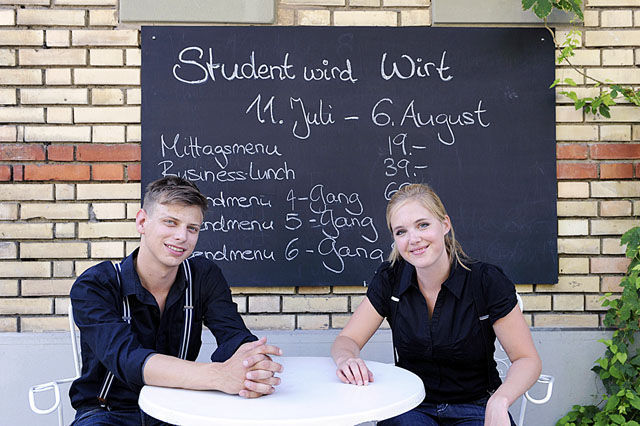 Student wird Wirt
11. Juli – 6. August
Mittagsmenu 19.-
Business-Lunch 39.-
endmenu 4-Gang
endmenu 5-Gang
endmenu 6-Gang